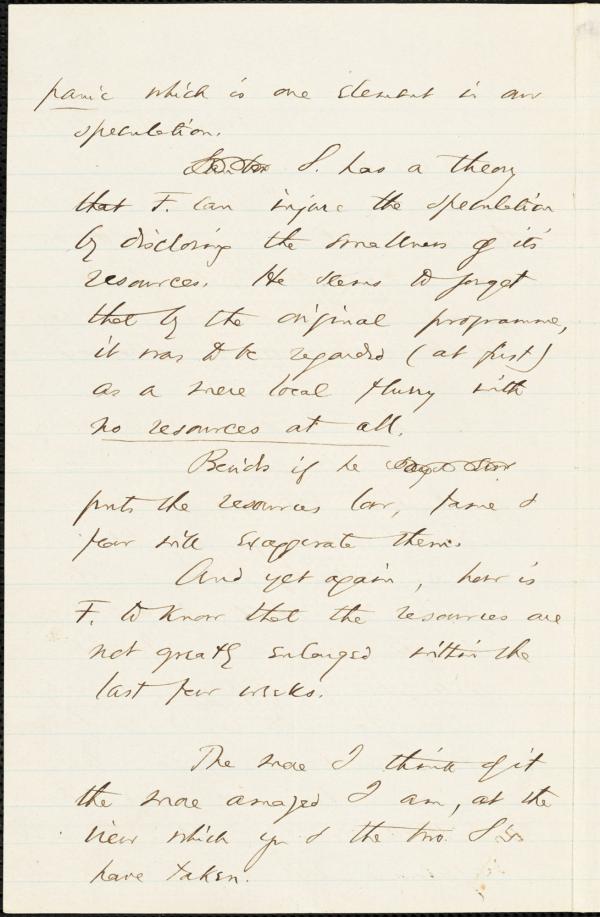 panic which is one element in our
speculation.
S. has a theory
that F. can injure the speculation
by disclosing the smallness of its
resources. He seems to forget
that by the original programme,
it was to be regarded (at first)
as a mere local flurry with
no resources at all.
Besides if he
puts the resources low, fame &
fear will exaggerate them.
And yet again, how is
F. to know that the resources are
not greatly enlarged within the
last few weeks.
The more I think of it
the more amazed I am, at the
view which you & the two S
have taken.